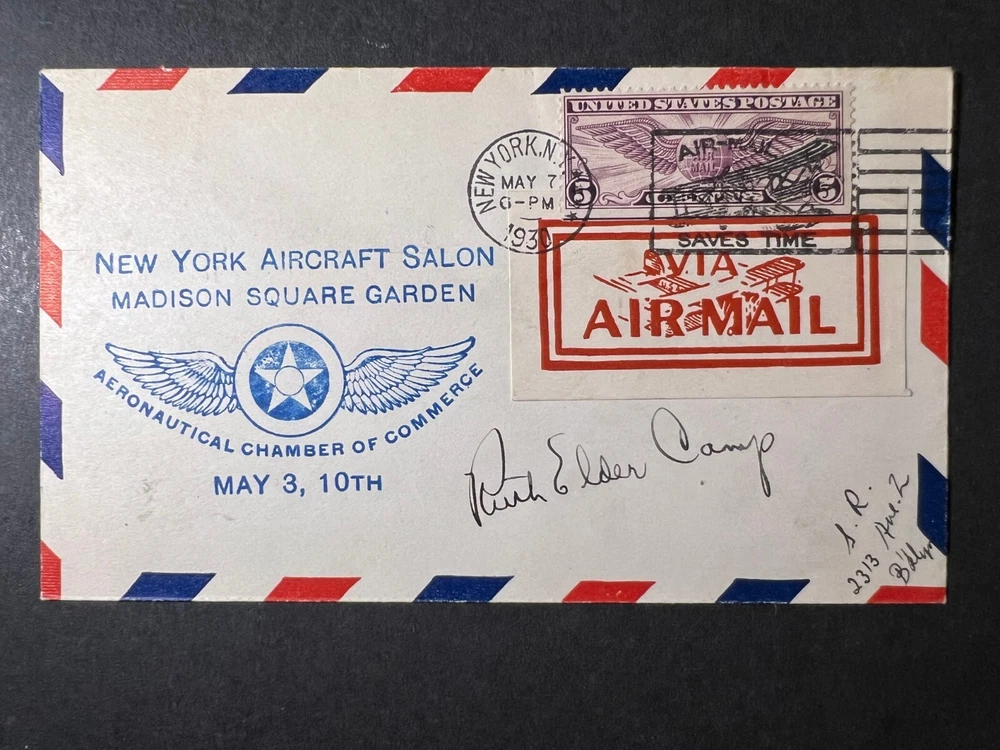 UNITED STATES POSTAGE
AIR MAIL
5 5
NEW YORK, N.Y.
MAY 7
6-PM
1930
AIR-MAIL
SAVES TIME
VIA
AIR MAIL
NEW YORK AIRCRAFT SALON
MADISON SQUARE GARDEN
AERONAUTICAL CHAMBER OF COMMERCE
MAY 3, 10TH
Ruth Elder Camp
S. R.
2313 Ave. Z
B'klyn